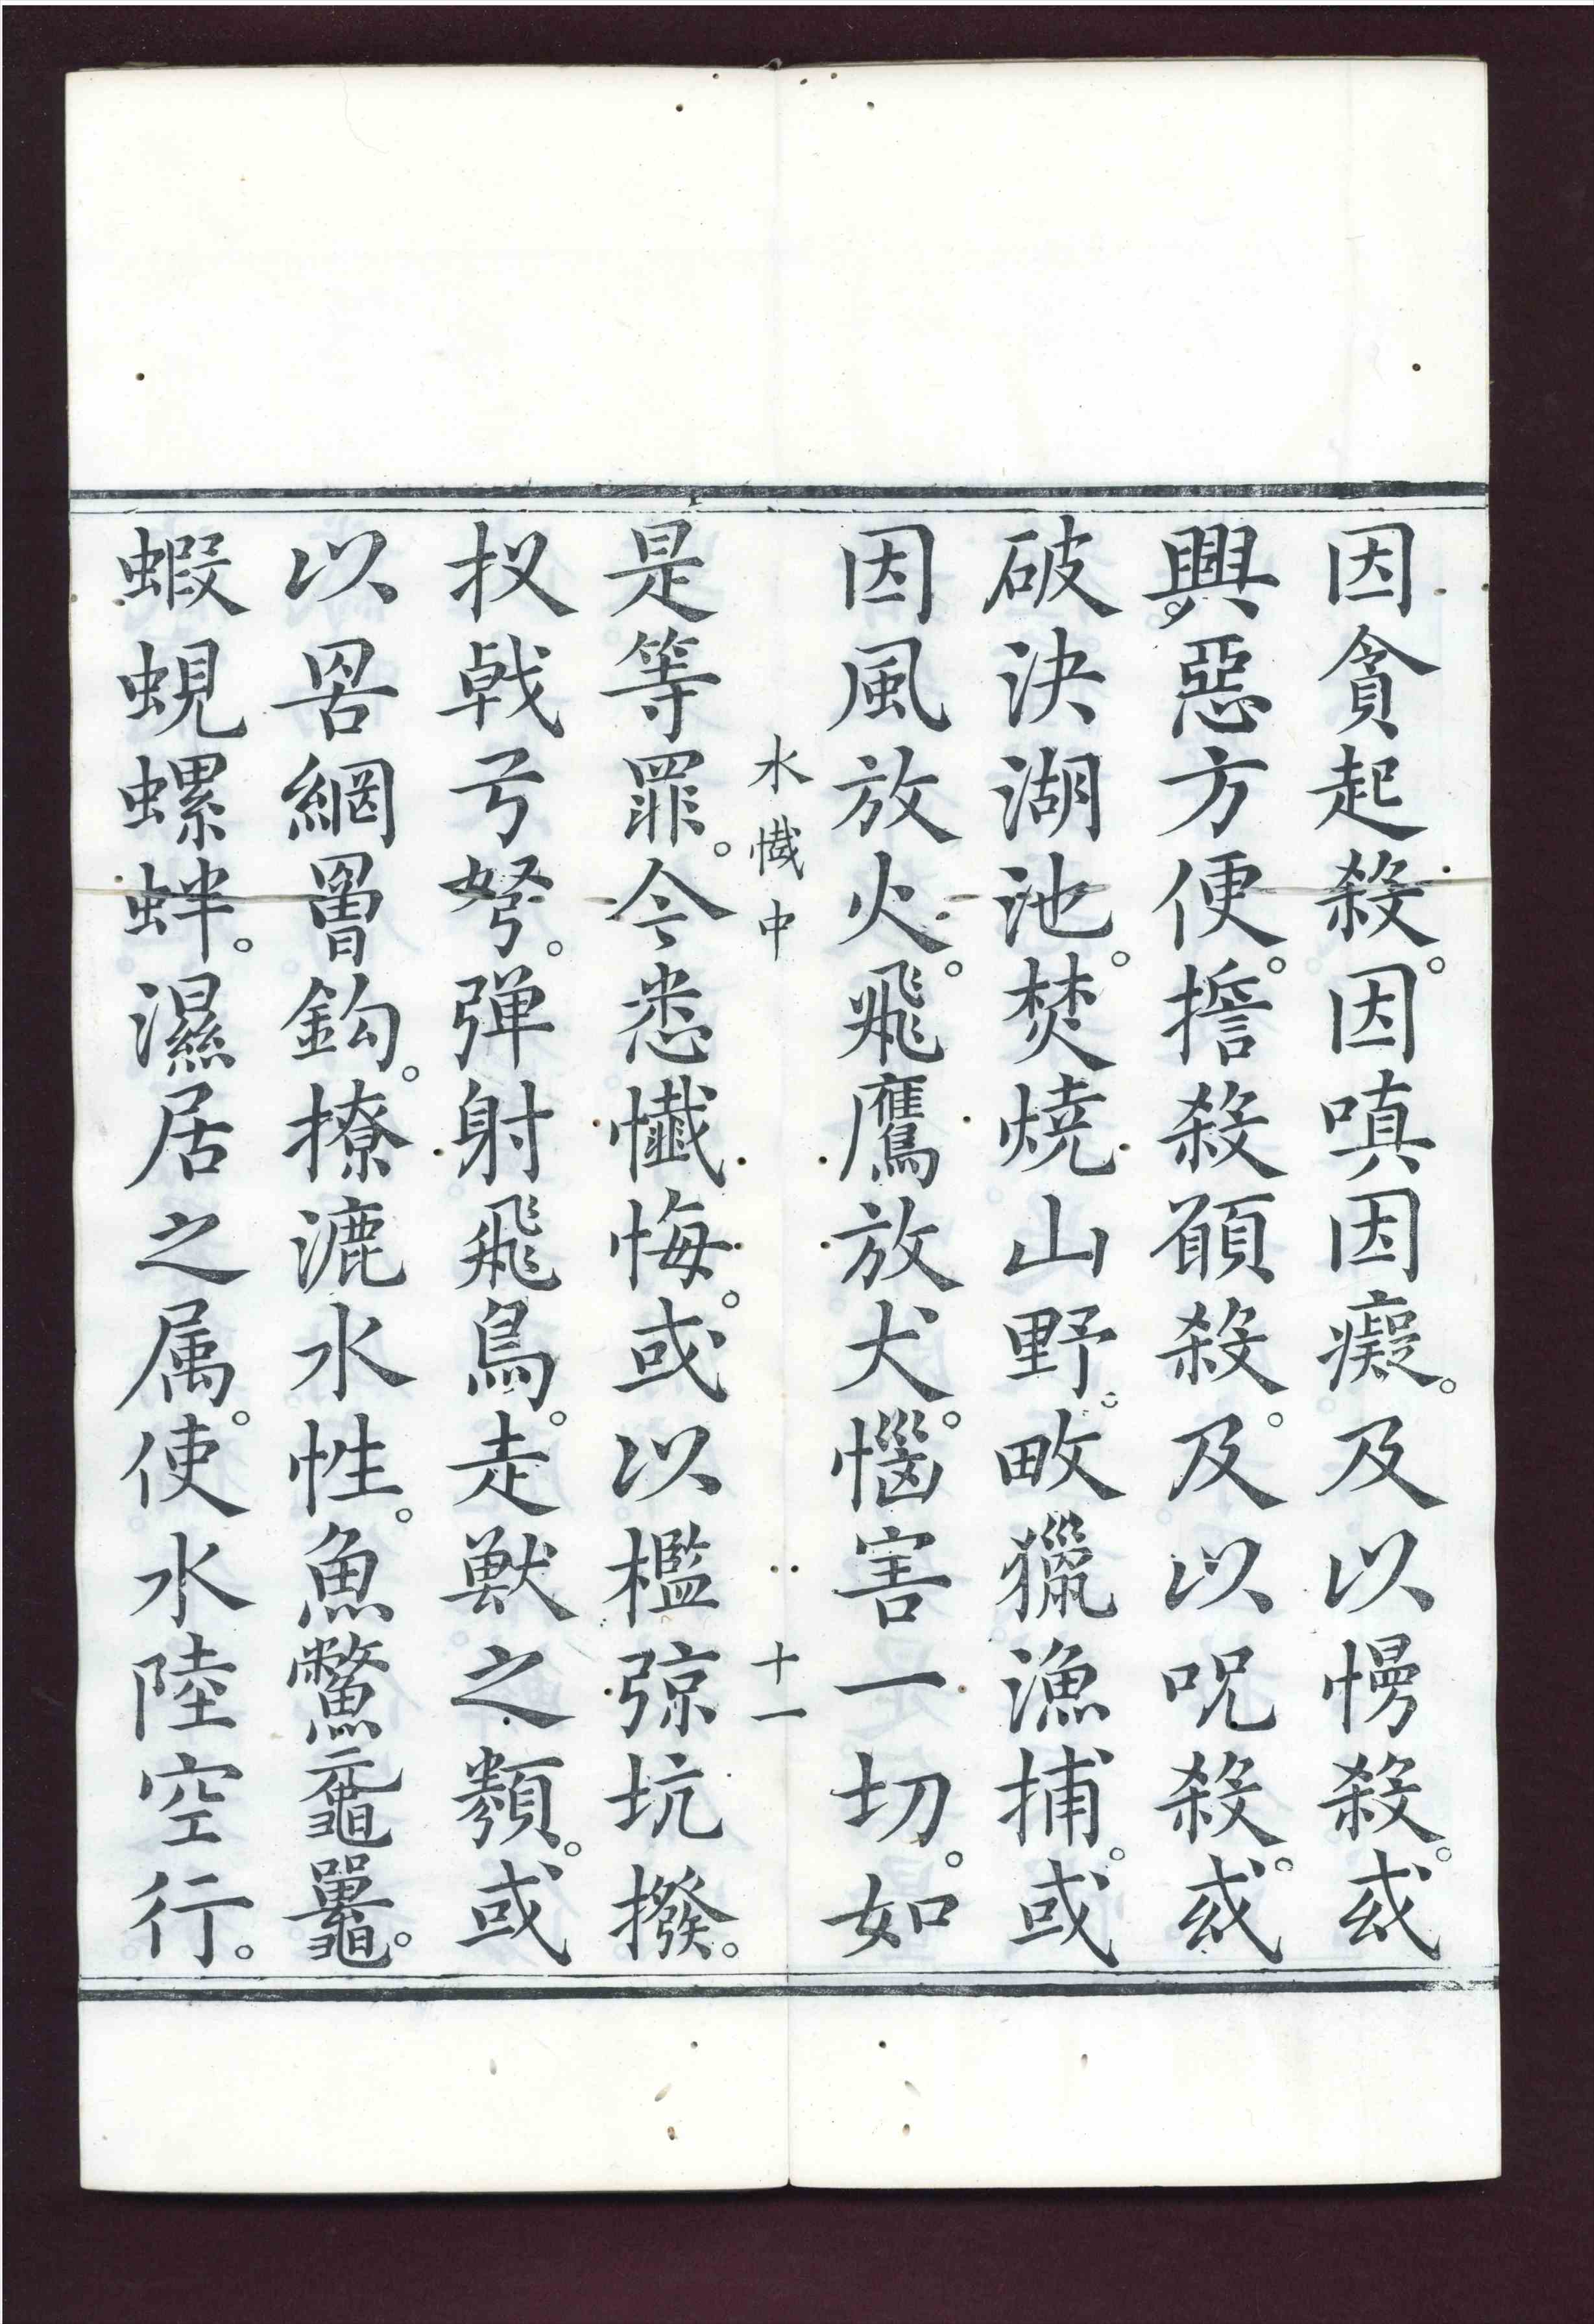 因貪起殺。因嗔因癡。及以慢殺。或
興惡方便。擔殺願殺。及以呪殺。或
破決湖池。焚燒山野。畋獵漁捕。或
因風放火。飛鷹放犬。惱害一切。如
水懺中 十一
是等罪。今悉懺悔。或以檻弶坑撥。
扠戟弓弩。弹射飛鳥。走獸之類。或
以罟網罾鈎。撩漉水性。魚鱉黿鼉。
蝦蜆螺蚌。濕居之属。使水陸空行。